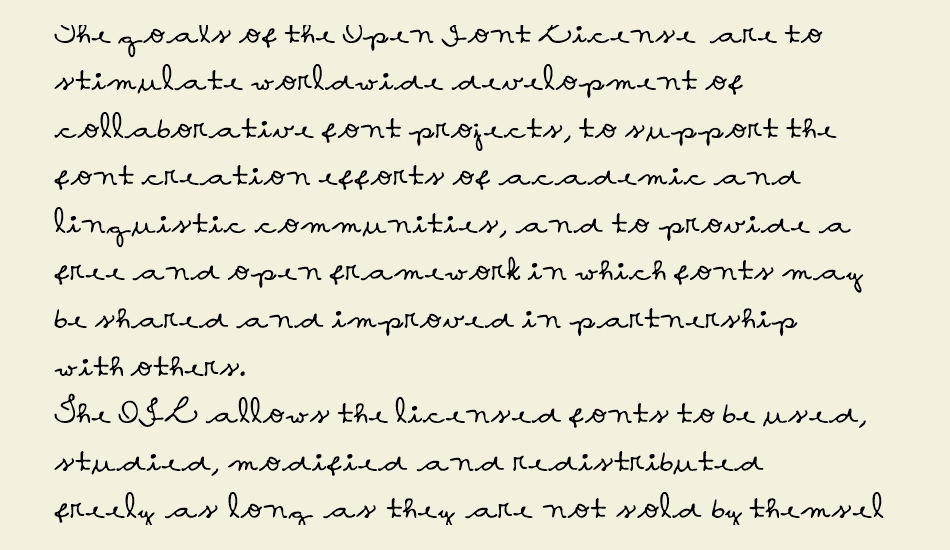 The goals of the Open Font License are to
stimulate worldwide development of
collaborative font projects, to support the
font creation efforts of academic and
linguistic communities, and to provide a
free and open framework in which fonts may
be shared and improved in partnership
with others.
The OFL allows the licensed fonts to be used,
studied, modified and redistributed
freely as long as they are not sold by themsel